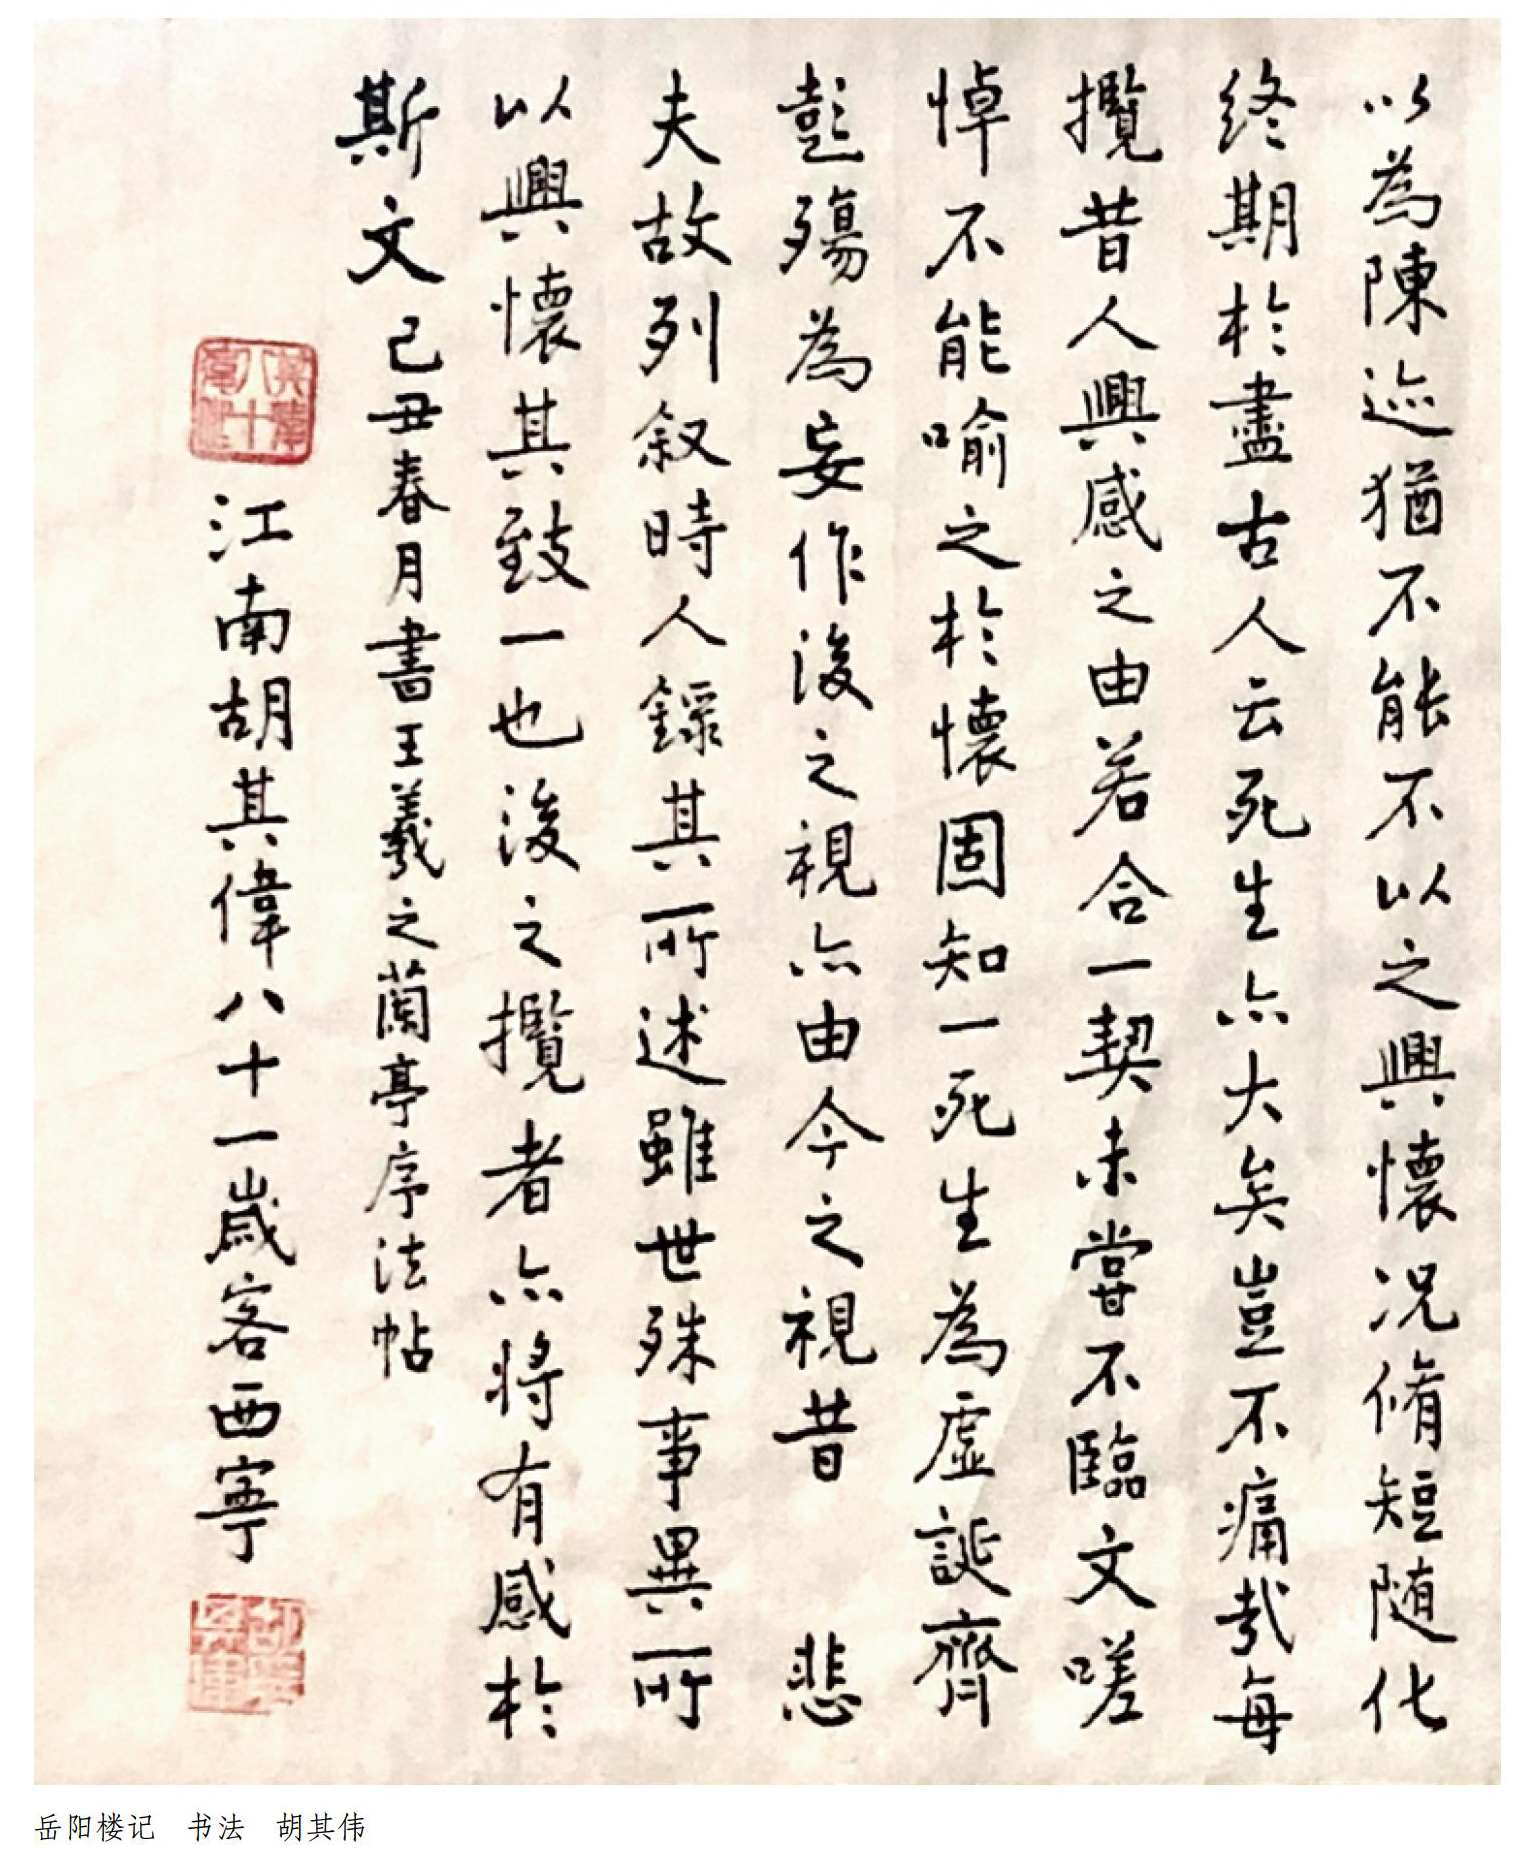 以為陳迹猶不能不以之興懷况脩短随化
終期於盡古人云死生亦大矣豈不痛哉每
攬昔人興感之由若合一契未嘗不臨文嗟
悼不能喻之於懷固知一死生為虛誕齊
彭殤為妄作後之視亦由今之視昔 悲
夫故列叙時人錄其所述雖世殊事異所
以興懷其致一也後之攬者亦将有感於
斯文 己丑春月書王羲之蘭亭序法帖
江南胡其偉八十一歲客西寧
岳阳楼记 书法 胡其伟